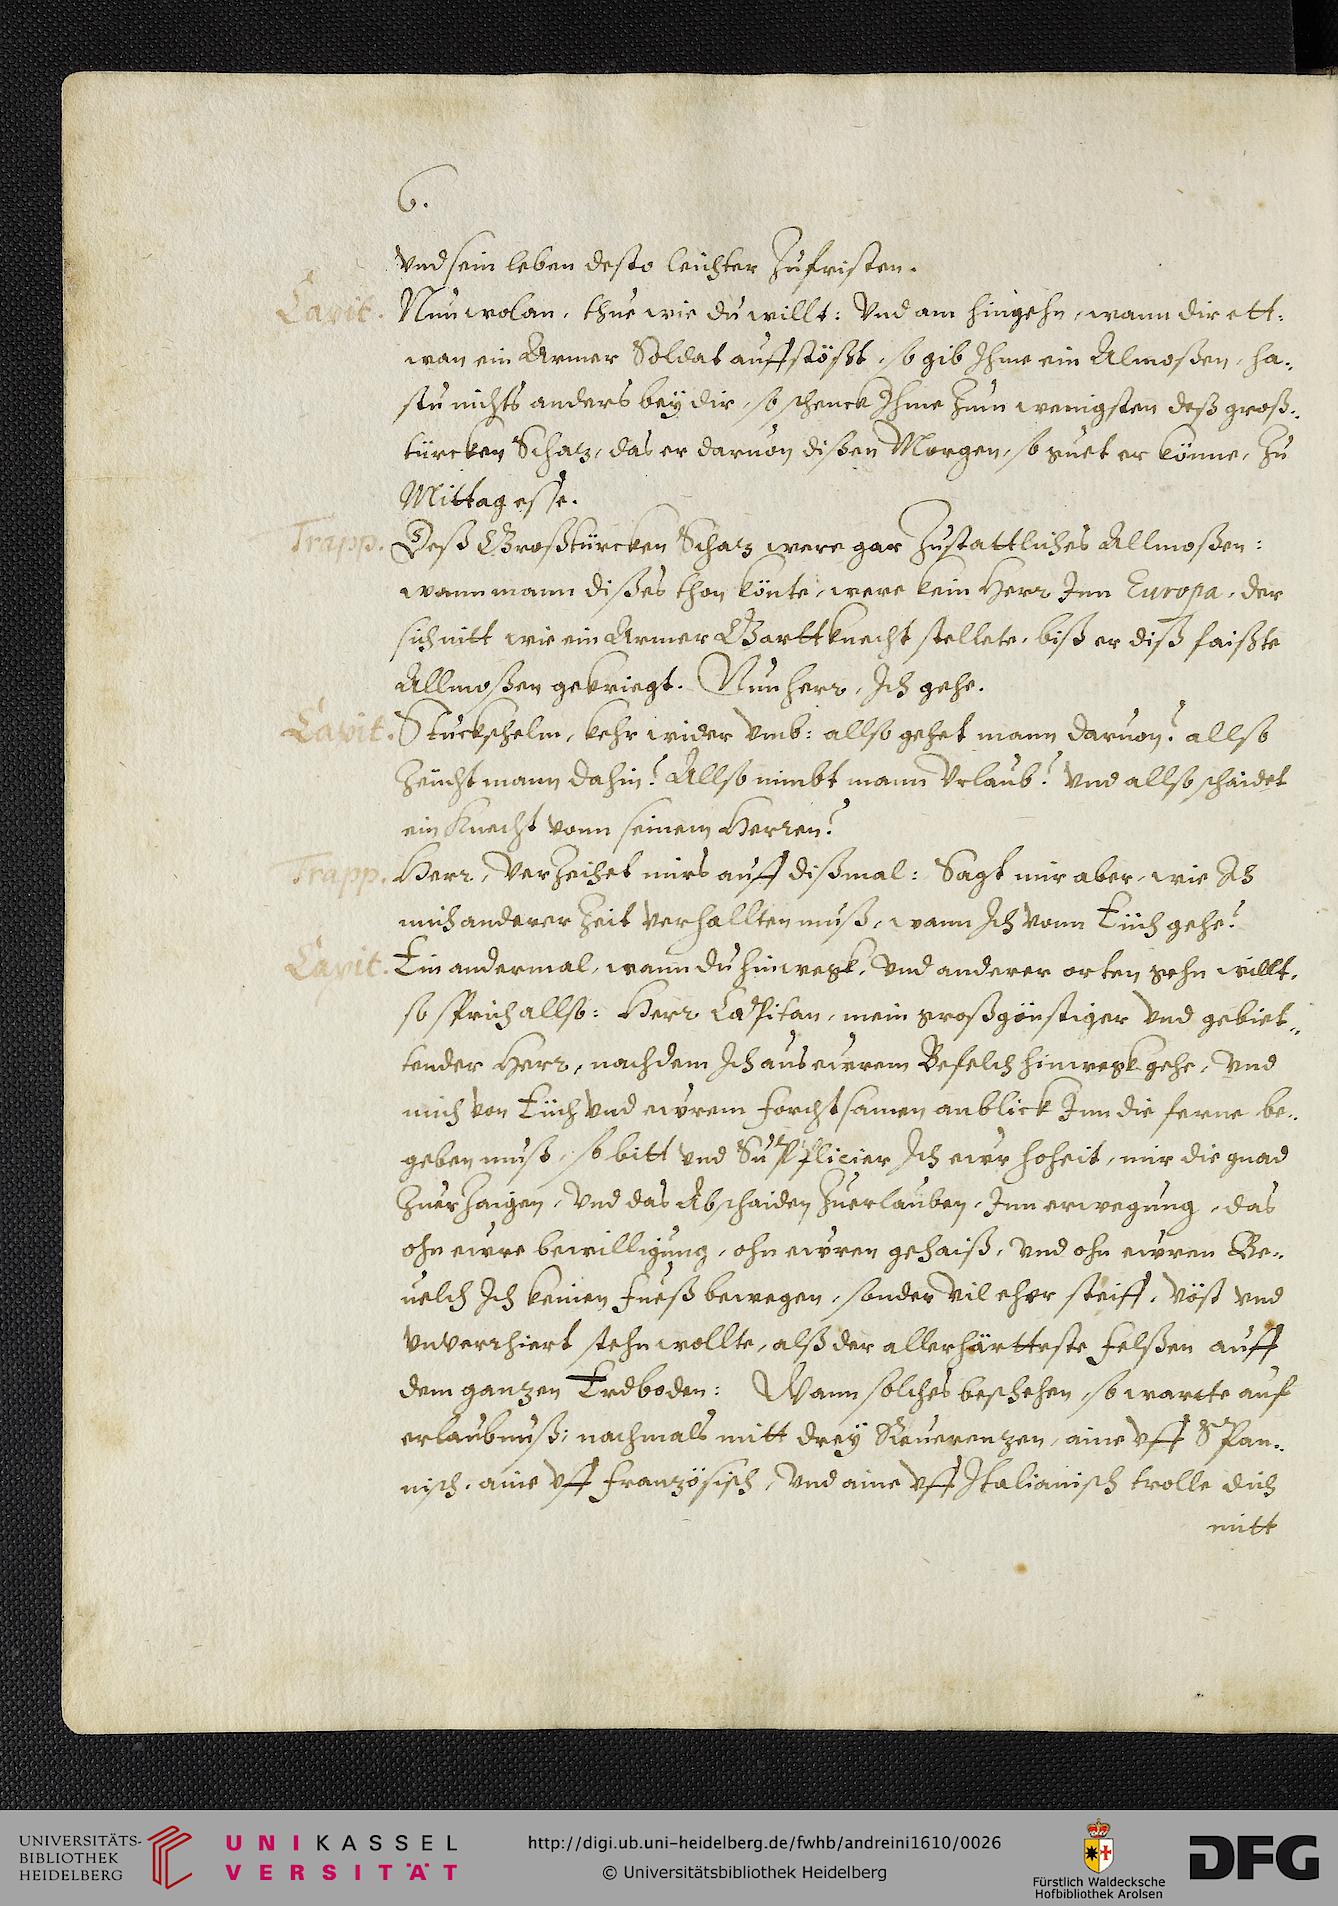 6.
vnd sein leben desto leichter zufristen.
Capit. Nun wolan, thue wie du willt: Vnd am hingehn, wann dir ett:
wan ein Armer Soldat auffstößt, so gib Ihme ein Almoßen, ha:
stu nichts anders bey dir, so schenck Ihme zum wenigsten deß groß:
türcken Schaz, das er daruon dißen Morgen, so guet er könne, zu
Mittag esse.
Trapp. Deß Großtürcken Schaz were gar zustattliches Allmoßen:
wann mann dißes thon könte, were kein Herr Inn Europa, der
sich nitt wie ein Armer Garttknecht stellete, biß er diß faißte
Allmoßen gekriegt. Nun herr, Ich gehe.
Capit. Stuckschelm, kehr wider vmb: allso gehet mann daruon? allso
zeücht mann dahin? Allso nimbt mann Vrlaub? Vnd allso schaidet
ein Knecht vonn seinem Herren?
Trapp. Herr, Verzeihet mirs auff dißmal: Sagt mir aber, wie Ich
mich anderer Zeit verhallten muß, wann Ich vonn Eüch gehe?
Capit. Ein andermal, wann du hinwegk, Vnd anderer orten gehn willt,
so sprich allso: Herr Capitan, mein großgönstiger Vnd gebiet:
tender Herr, nachdem Ich aus ewrem Befelch hinwegk gehe, Vnd
mich von Eüch Vnd ewrem forchtsamen anblick Inn die ferne be:
geben muß, so bitt vnd Supplicier Ich ewr hoheit, mir die gnad
zuerzaigen, Vnd das Abschaiden zuerlauben, Inn erwegung, das
ohn ewre bewilligung, ohn ewren gehaiß, Vnd ohn ewren Be:
uelch Ich keinen Fueß bewegen, sonder vil eher steiff, vöst vnd
vnverrhiert stehn wollte, alß der allerhärtteste Felßen auff
dem ganzen Erdboden: Wann solches beschehen, so warte auf
erlaubnuß: nachmals mitt drey Reuerenzen, aine vff Span:
nisch, aine vff Französisch, Vnd aine vff Italianisch trolle dich
mitt
UNIVERSITÄTS-
BIBLIOTHEK
HEIDELBERG
UNIKASSEL
VERSITÄT
http://digi.ub.uni-heidelberg.de/fwhb/andreini1610/0026
© Universitätsbibliothek Heidelberg
Fürstlich Waldecksche
Hofbibliothek Arolsen
DFG